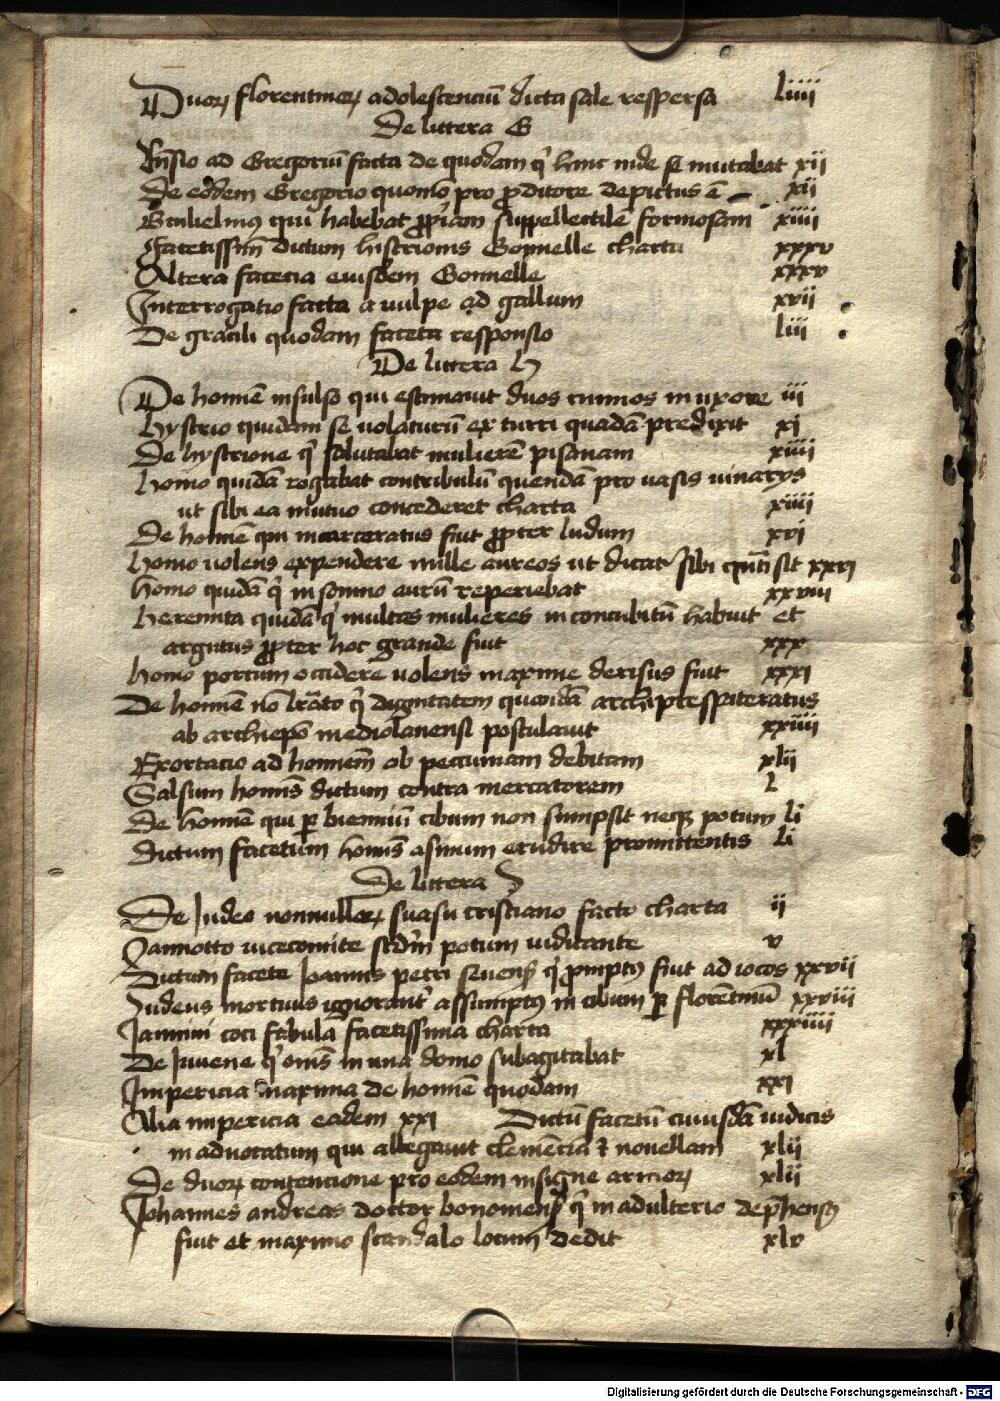 Duorꝝ florentinorꝝ adolescenciū dicta sale respersa liiii
De littera G
Rn̄sio ad Gregoriū facta de quodam q̇ hinc inde se mutabat xii
De eodem Gregorio quomō pro ꝓditore depictus ē xii
Gwilielmꝰ qui habebat ꝓpriam suppellectilē formosam xiiii
Facetissim̄ dictum histrionis Gonnelle charta xxxv
Altera facecia eiusdem Gonnelle xxxv
Interrogatio facta a vulpe ad gallum xvii
De gracili quodam faceta responsio liii
De littera h
De homīe insulso qui estimavit duos cunnos in uxore iii
hystrio quidam se volaturū ex turri quadā predixit xi
De hystrione q̇ salutabat mulierē pisanam xiiii
homo quidā rogabat contribulū quendā pro vasis vinarys
ut sibi ea mutuo concederet charta xiiii
De homīe qui incarceratus fuit ꝓpter ludum xvi
homo volens expendere mille aureos ut dicat sibi sit xxvi
homo quidā q̇ in somno aurū reperiebat xxviii
heremita quidā q̇ multas mulieres in concubitū habuit et
argutus ꝓpter hoc grande fuit xxx
homo porcum occidere volens maxime derisus fuit xxxi
De homīe nō lrāto q̇ dignitatem quandā archipresspiteratus
ab archiepō mediolanensi postulavit xxiiii
Exortacio ad hominem ob pecuniam debitam xlii
Salsum homīs dictum contra mercatorem L
De homīe qui ꝑ bienniū cibum non sumpsit neqꝫ potum li
dictum facetum homīs asinum erudire promittentis li
De littera I
De Judeo nonnullorꝝ suasu cristiano facto charta ii
Jannotto vicecomite potum iudicante v
Dictum facete Joannis petri senens̄ q̇ pmptꝰ fuit ad iocos xxvii
Judeus mortuus ignorant̄ assumptꝰ in cibum ꝑ florētinū xxviii
Jannini coci fabula facetissima charta xxxiiii
De Juvene q̇ omīs in una domo subagitabat xl
Impericia maxima de homīe quodam xxi
Alia impericia eadem xxi Dictū facetū cuiusdā iudicis
in advocatum qui allegavit clemēcia & novellam xlii
De duorꝝ contencione pro eodem insigne armorꝝ xlii
Johannes andreas doctor bononiens̄ q̇ in adulterio dep̄hensꝰ
fuit et maximo scandalo locum dedit xlv
Digitalisierung gefördert durch die Deutsche Forschungsgemeinschaft - DFG